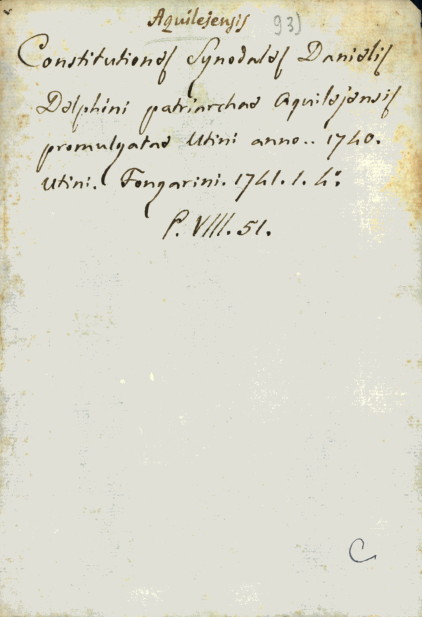 Aquilejensis 93)
Constitutiones Synodales Danielis
Delphini patriarchae Aquilejensis
promulgatae Utini anno.. 1740.
Utini. Fongarini. 1741. 1. 4°.
P. VIII. 51.
C